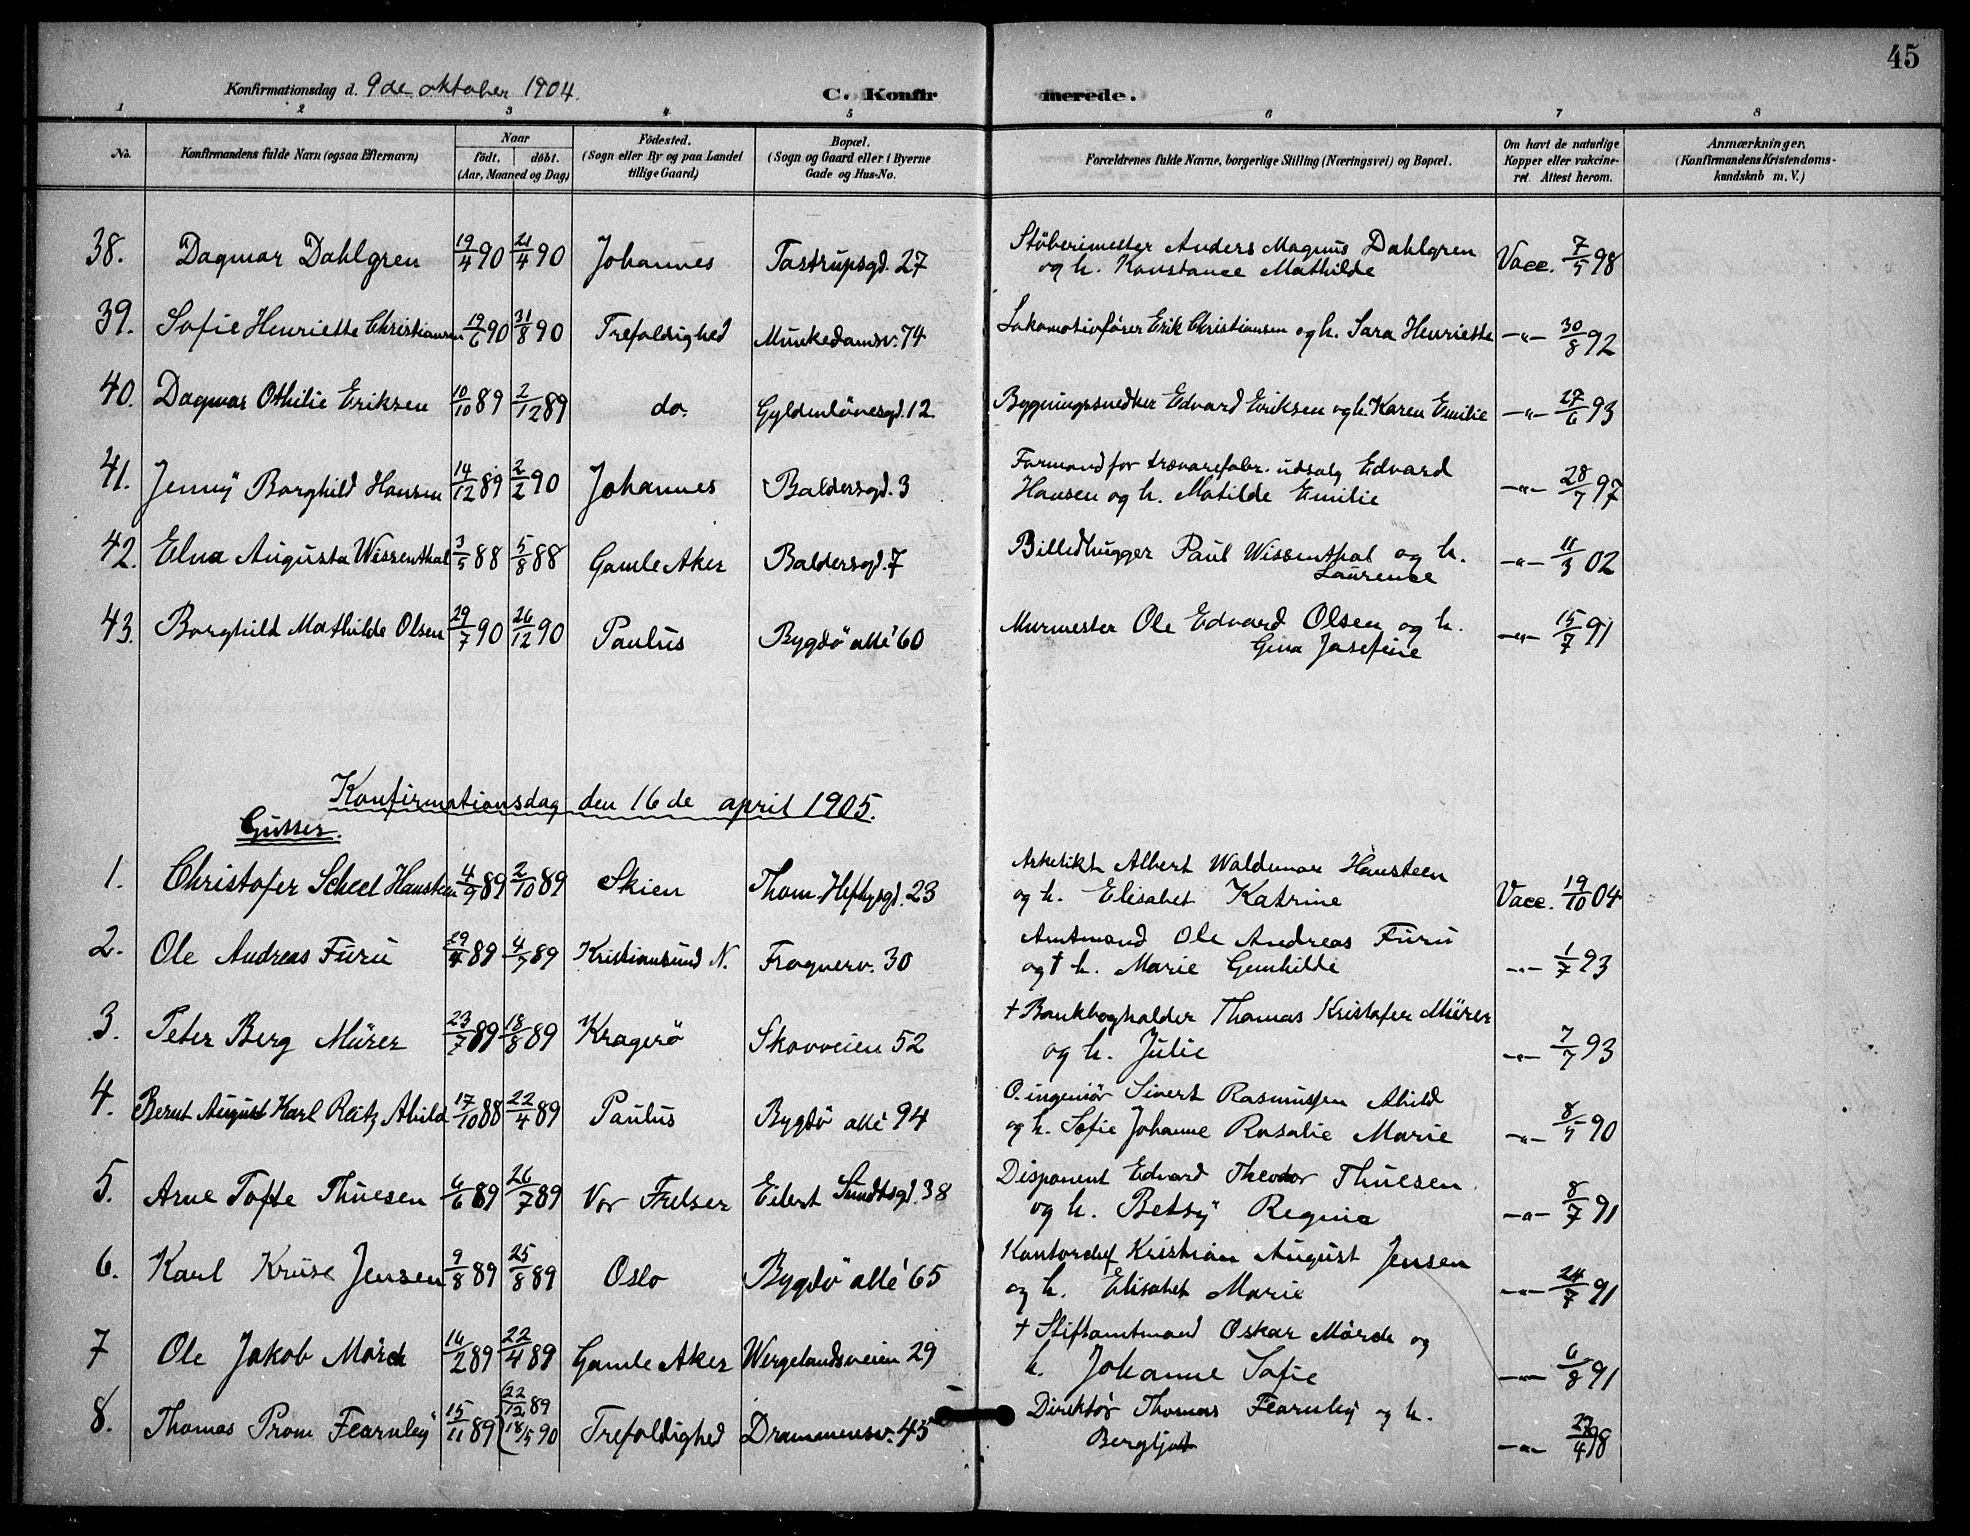 45
Konfirmationsdag d. 9de oktober 1904.
C. Konfirmerede.
1 2 3 4 5 6 7 8
No. Konfirmandens fulde Navn (ogsaa Efternavn) Naar födt. döbt. (Aar, Maaned og Dag) Födested. (Sogn eller By og paa Landet tillige Gaard) Bopæl. (Sogn og Gaard eller i Byerne Gade og Hus-No. Forældrenes fulde Navne, borgerlige Stilling (Næringsvei) og Bopæl. Om havt de naturlige Kopper eller vakcineret. Attest herom. Anmærkninger, (Konfirmandens Kristendomskundskab m. V.)
38. Dagmar Dahlgren 19/4 90 21/4 90 Johannes Tostrupsgd. 27 Stöberimester Anders Magnus Dahlgren Vacc. 7/5 98
og h. Konstance Mathilde
39. Sofie Henriette Christiansen 19/6 90 31/8 90 Trefoldighed Munkedamsv. 74 Lokomotivförer Erik Christiansen og h. Sara Henriette -"- 30/8 92
40. Dagmar Othilie Eriksen 10/10 89 2/12 89 do. Gyldenlövesgd. 12 Bygningssnedker Edvard Eriksen og h. Karen Emilie -"- 27/6 93
41. Jenny Borghild Hansen 14/12 89 2/2 90 Johannes Baldersgd. 3 Formand for trævarefabr. udsalg Edvard
Hansen og h. Matilde Emilie -"- 28/7 97
42. Elna Augusta Wissenthal 3/5 88 5/8 88 Gamle Aker Baldersgd. 7 Billedhugger Paul Wissenthal og h. -"- 11/3 02
Laurence
43. Borghild Mathilde Olsen 29/7 90 26/12 90 Paulus Bygdö allé 60 Murmester Ole Edvard Olsen og h. -"- 15/7 91
Gina Josefine
Konfirmationsdag den 16de april 1905.
Gutter.
1. Christofer Scheel Hansteen 4/9 89 2/10 89 Skien Thom. Heftysgd. 23 Arkitekt Albert Waldemar Hansteen
og h. Elisabet Katrine Vacc. 19/10 04
2. Ole Andreas Furu 29/4 89 4/7 89 Kristiansund N. Frognerv. 30 Amtmand Ole Andreas Furu
og † h. Marie Gunhilde -"- 1/7 93
3. Peter Berg Mürer 23/7 89 18/8 89 Kragerö Skovveien 52 † Bankbogholder Thomas Kristofer Mürer
og h. Julie -"- 7/7 93
4. Bernt August Karl Reitz Abild 17/10 88 22/4 89 Paulus Bygdö allé 94 O. ingeniör Sivert Rasmussen Abild
og h. Sofie Johanne Rosalie Marie -"- 8/5 90
5. Arne Tofte Thuesen 6/6 89 26/7 89 Vor Frelser Eilert Sundtsgd. 38 Disponent Edvard Theodor Thuesen
og h. Betsy Regine -"- 8/7 91
6. Karl Kruse Jensen 9/8 89 25/8 89 Oslo Bygdö allé 65 Kontorchef Kristian August Jensen
og h. Elisabet Marie -"- 24/7 91
7 Ole Jakob Mörch 16/2 89 22/4 89 Gamle Aker Wergelandsveien 29 † Stiftamtmand Oskar Mörch og
h. Johanne Sofie -"- 6/8 91
8. Thomas Prom Fearnley 15/11 89 (22/12 89 18/5 90 Trefoldighed Drammensv. 45 Direktör Thomas Fearnley og h.
Bergljot -"- 27/4 98